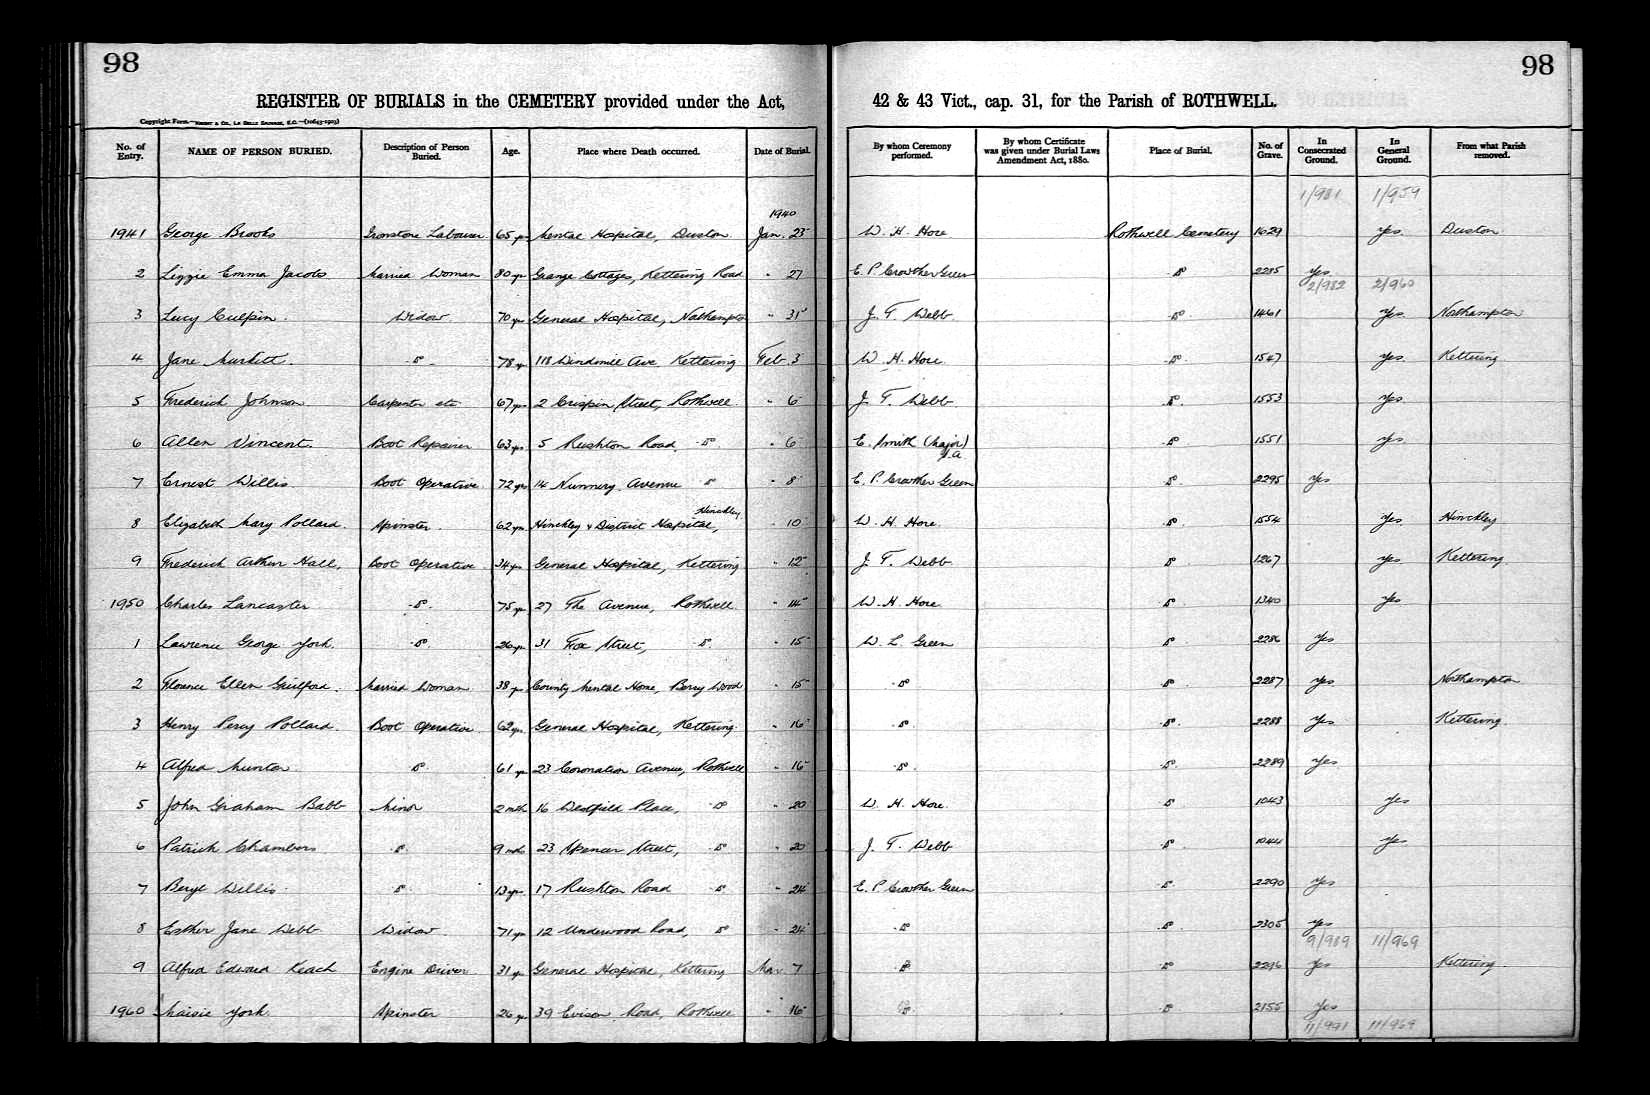 98
98
REGISTER OF BURIALS in the CEMETERY provided under the Act, 42 & 43 Vict., cap. 31, for the Parish of ROTHWELL.
Copyright Form.—KNIGHT & CO., LA BELLE SAUVAGE, E.C.—
No. of Entry. NAME OF PERSON BURIED. Description of Person Buried. Age. Place where Death occurred. Date of Burial. By whom Ceremony performed. By whom Certificate was given under Burial Laws Amendment Act, 1880. Place of Burial. No. of Grave. In Consecrated Ground. In General Ground. From what Parish removed.
1/981 1/959
1940
1941 George Brooks Ironstone Labourer 65 yrs Mental Hospital, Duston Jan. 23 W. H. Hore Rothwell Cemetery 1029 yes Duston
2 Lizzie Emma Jacobs Married Woman 80 yrs Grange Cottages, Kettering Road " 27 E. P. Crowther Green Do 2285 yes
2/982 2/960
3 Lucy Culpin Widow 70 yrs General Hospital, Northampton " 31 J. T. Webb Do 1461 yes Northampton
4 Jane Murkitt Do 78 yrs 118 Windmill Ave Kettering Feb. 3 W. H. Hore Do 1547 yes Kettering
5 Frederick Johnson Carpenter etc 67 yrs 2 Crispin Street, Rothwell " 6 J. T. Webb Do 1553 yes
6 Allen Vincent Boot Repairer 63 yrs 5 Rushton Road, Do " 6 E. Smith (Major) S.A Do 1551 yes
7 Ernest Willis Boot Operative 72 yrs 14 Nunnery Avenue Do " 8 E. P. Crowther Green Do 2295 yes
8 Elizabeth Mary Pollard Spinster 62 yrs Hinckley & District Hospital, Hinckley " 10 W. H. Hore Do 1554 yes Hinckley
9 Frederick Arthur Hall, Boot Operative 34 yrs General Hospital, Kettering " 12 J. T. Webb Do 1267 yes Kettering
1950 Charles Lancaster Do 75 yrs 27 The Avenue, Rothwell " 14 W. H. Hore Do 1340 yes
1 Lawrence George York Do 26 yrs 31 Fox Street, Do " 15 W. L. Green Do 2286 yes
2 Florence Ellen Guilford Married Woman 38 yrs County Mental Home, Berry Wood " 15 Do Do 2287 yes Northampton
3 Henry Percy Pollard Boot Operative 62 yrs General Hospital, Kettering " 16 Do Do 2288 yes Kettering
4 Alfred Munton Do 61 yrs 23 Coronation Avenue, Rothwell " 16 Do Do 2289 yes
5 John Graham Babb Minor 2 mths 16 Westfield Place, Do " 20 W. H. Hore Do 1043 yes
6 Patrick Chambers Do 9 mths 23 Spencer Street, Do " 20 J. T. Webb Do 1044 yes
7 Beryl Willis Do 13 yrs 17 Rushton Road Do " 24 E. P. Crowther Green Do 2290 yes
8 Esther Jane Webb Widow 71 yrs 12 Underwood Road, Do " 24 Do Do 2305 yes
9/989 11/969
9 Alfred Edward Keach Engine Driver 31 yrs General Hospital, Kettering Mar. 7 Do Do 2296 yes Kettering
1960 Maisie York Spinster 26 yrs 39 Evison Road, Rothwell " 16 Do Do 2155 yes
11/991 11/969